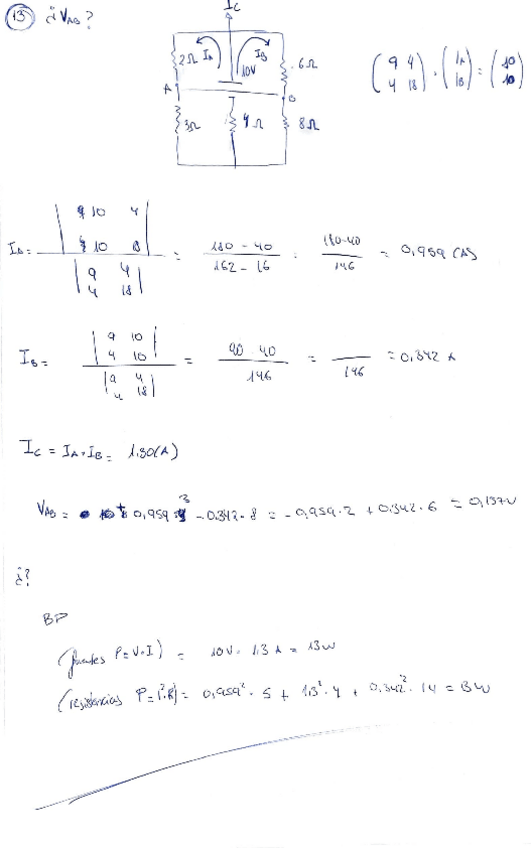 13 ¿VAB?
IC
2Ω IA IB 6Ω
10V
A B
3Ω 4Ω 8Ω
(9 4 / 4 18) · (IA / IB) = (10 / 10)
IA = |10 4 / 10 18| / |9 4 / 4 18| = 180 - 40 / 162 - 16 = 180-40 / 146 = 0,959 (A)
IB = |9 10 / 4 10| / |9 4 / 4 18| = 90 40 / 146 = / 146 = 0,342 A
IC = IA + IB = 1,30(A)
VAB = 0,959 · 3 - 0.342 · 8 = - 0,959 · 2 + 0.342 · 6 = 0,137V
¿?
BP
(fuentes P = V·I) = 10V · 1.3 A = 13W
(resistencias P = I²·R) = 0,959² · 5 + 1,3² · 4 + 0,342² · 14 = 13W